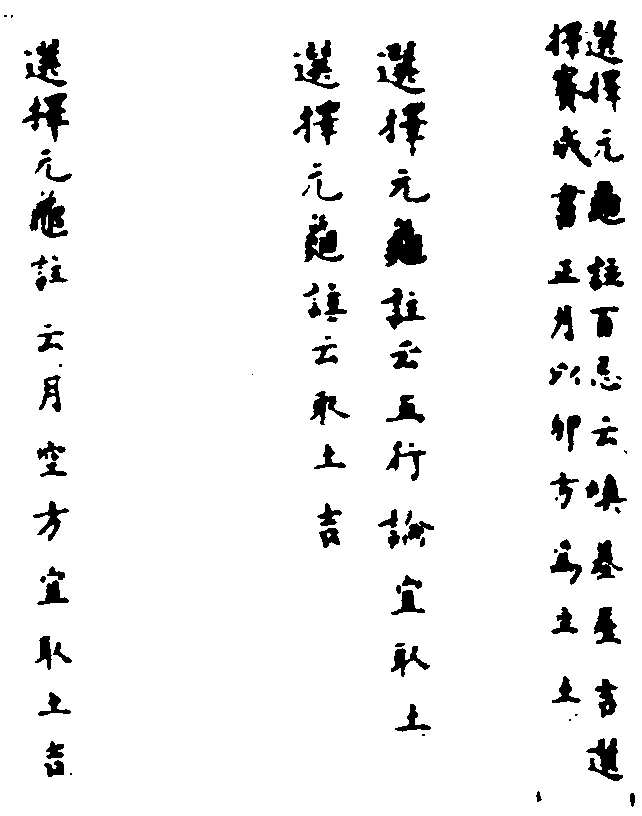 選擇元龜註百忌云填基壘吉選
擇賽成書正月以卯方為主土
選擇元龜註云五行論宜取土
選擇元龜註云取土吉
選擇元龜註云月空方宜取土吉